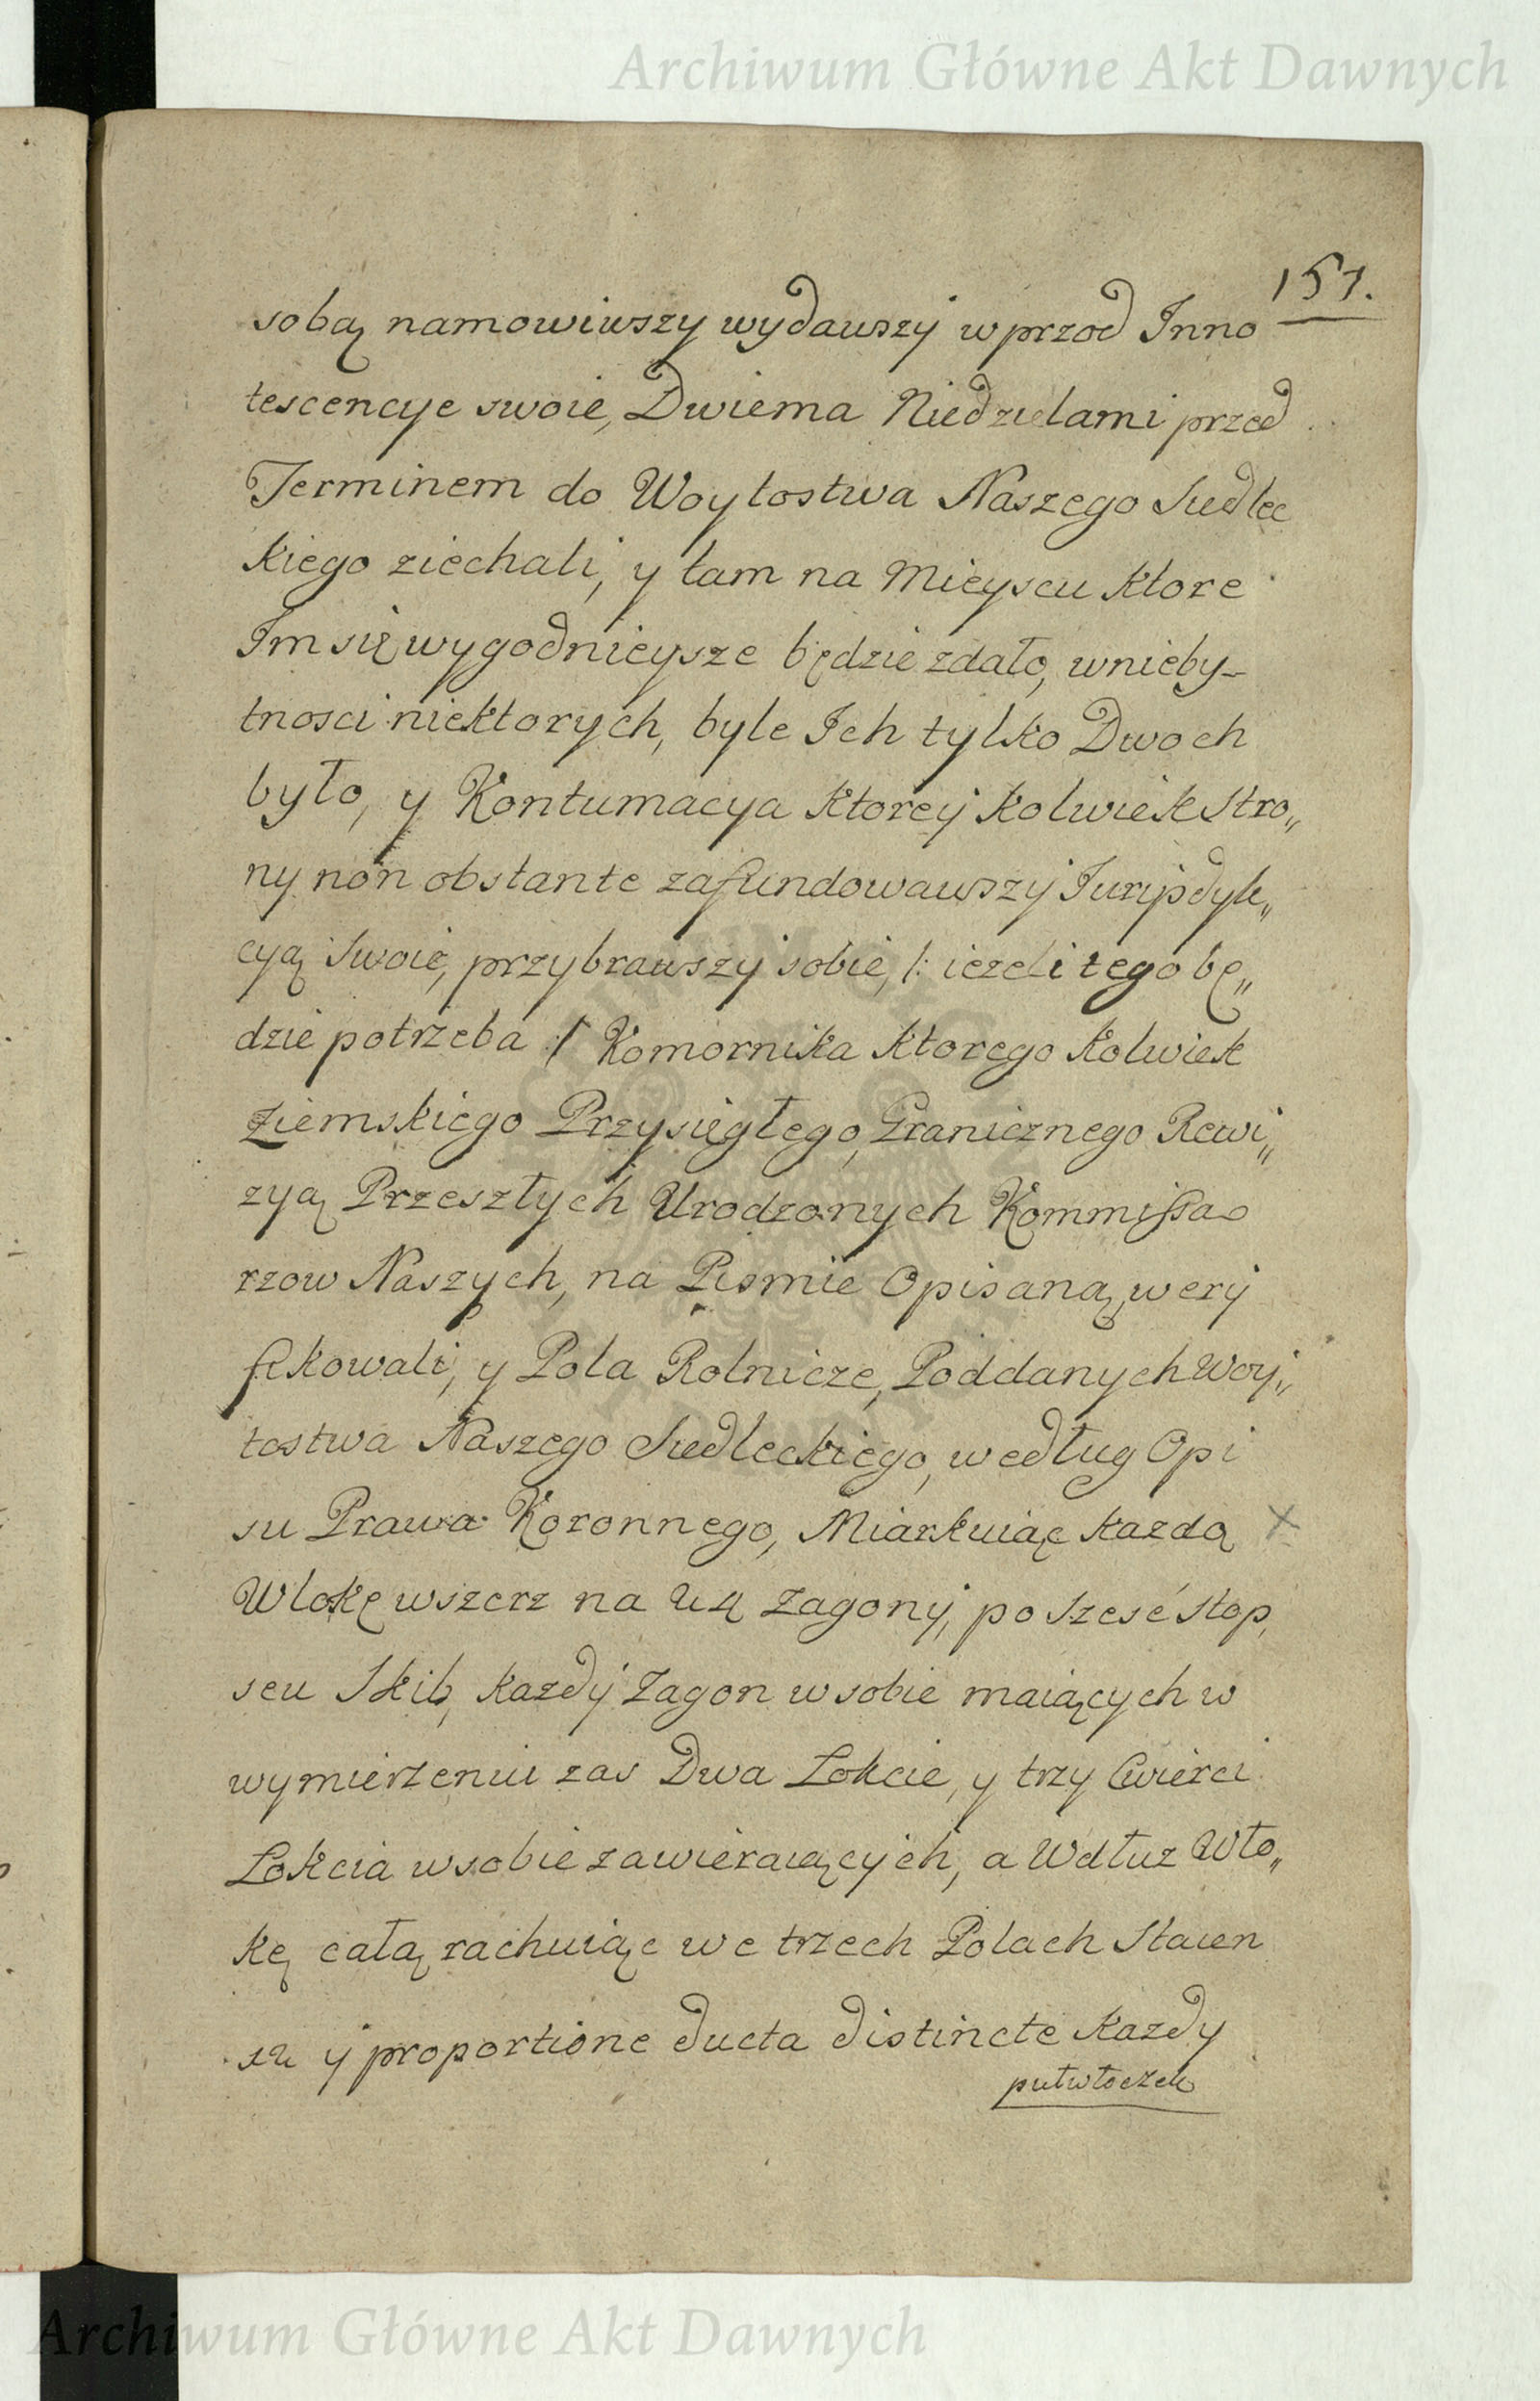 Archiwum Główne Akt Dawnych
151.
sobą namowiwszy wydawszy wprzod Inno
tescencye swoie, Dwiema Niedzielami przed
Terminem do Woytostwa Naszego Siedlec
kiego ziechali, y tam na Mieyscu ktore
Im się wygodnieysze będzie zdało, wnieby-
tnosci niektorych, byle Ich tylko Dwoch
było, y Kontumacya ktorey kolwiek Stro„
ny non obstante zafundowawszy Juryzdyk„
cyą Swoię, przybrawszy sobie, /: ieżeli tego bę„
dzie potrzeba :/ Komornika ktorego kolwiek
Ziemskiego Przysięgłego, Granicznego Rewi„
zyą Przeszłych Urodzonych Kommissa
rzow Naszych, na Pismie Opisaną, wery
fikowali, y Pola Rolnicze, Poddanych Woy„
tostwa Naszego Siedleckiego, według Opi
su Prawa Koronnego, Miarkuiąc każdą
Wlokę wszerz na 24 Zagony, po szesć stop,
seu Skib, każdy Zagon w sobie maiących w
wymierzeniu zas Dwa Łokcie, y trzy Cwierci
Łokcia wsobie zawieraiących, a Wdłuż Wło„
kę całą rachuiąc we trzech Polach Staien
y proportione ducta distincte każdy
pułwłoczek
Archiwum Główne Akt Dawnych